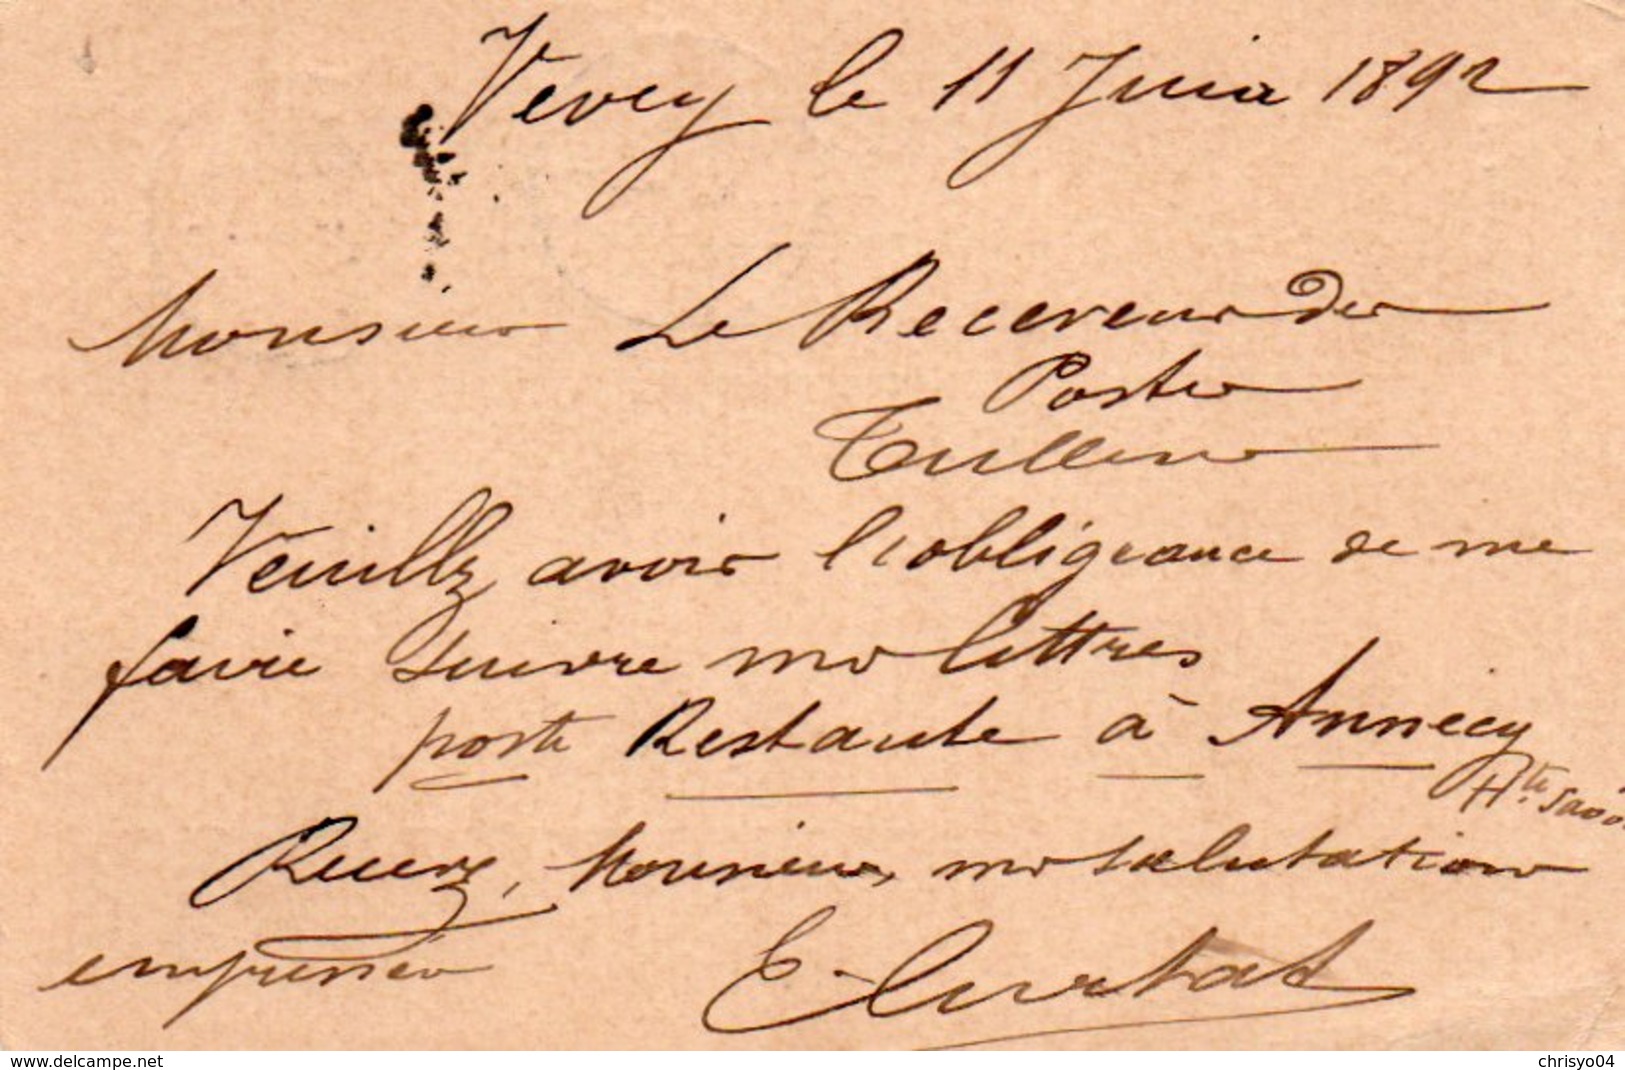 Vevey le 11 Juin 1892
Monsieur Le Receveur des
Postes
Tullins
Veuillez avoir l'obligeance de me
faire suivre mes lettres
poste Restante à Annecy
Hte Savoi
Recevez, Monsieur, mes salutations
empressées
E.
www.delcampe.net
chrisyo04